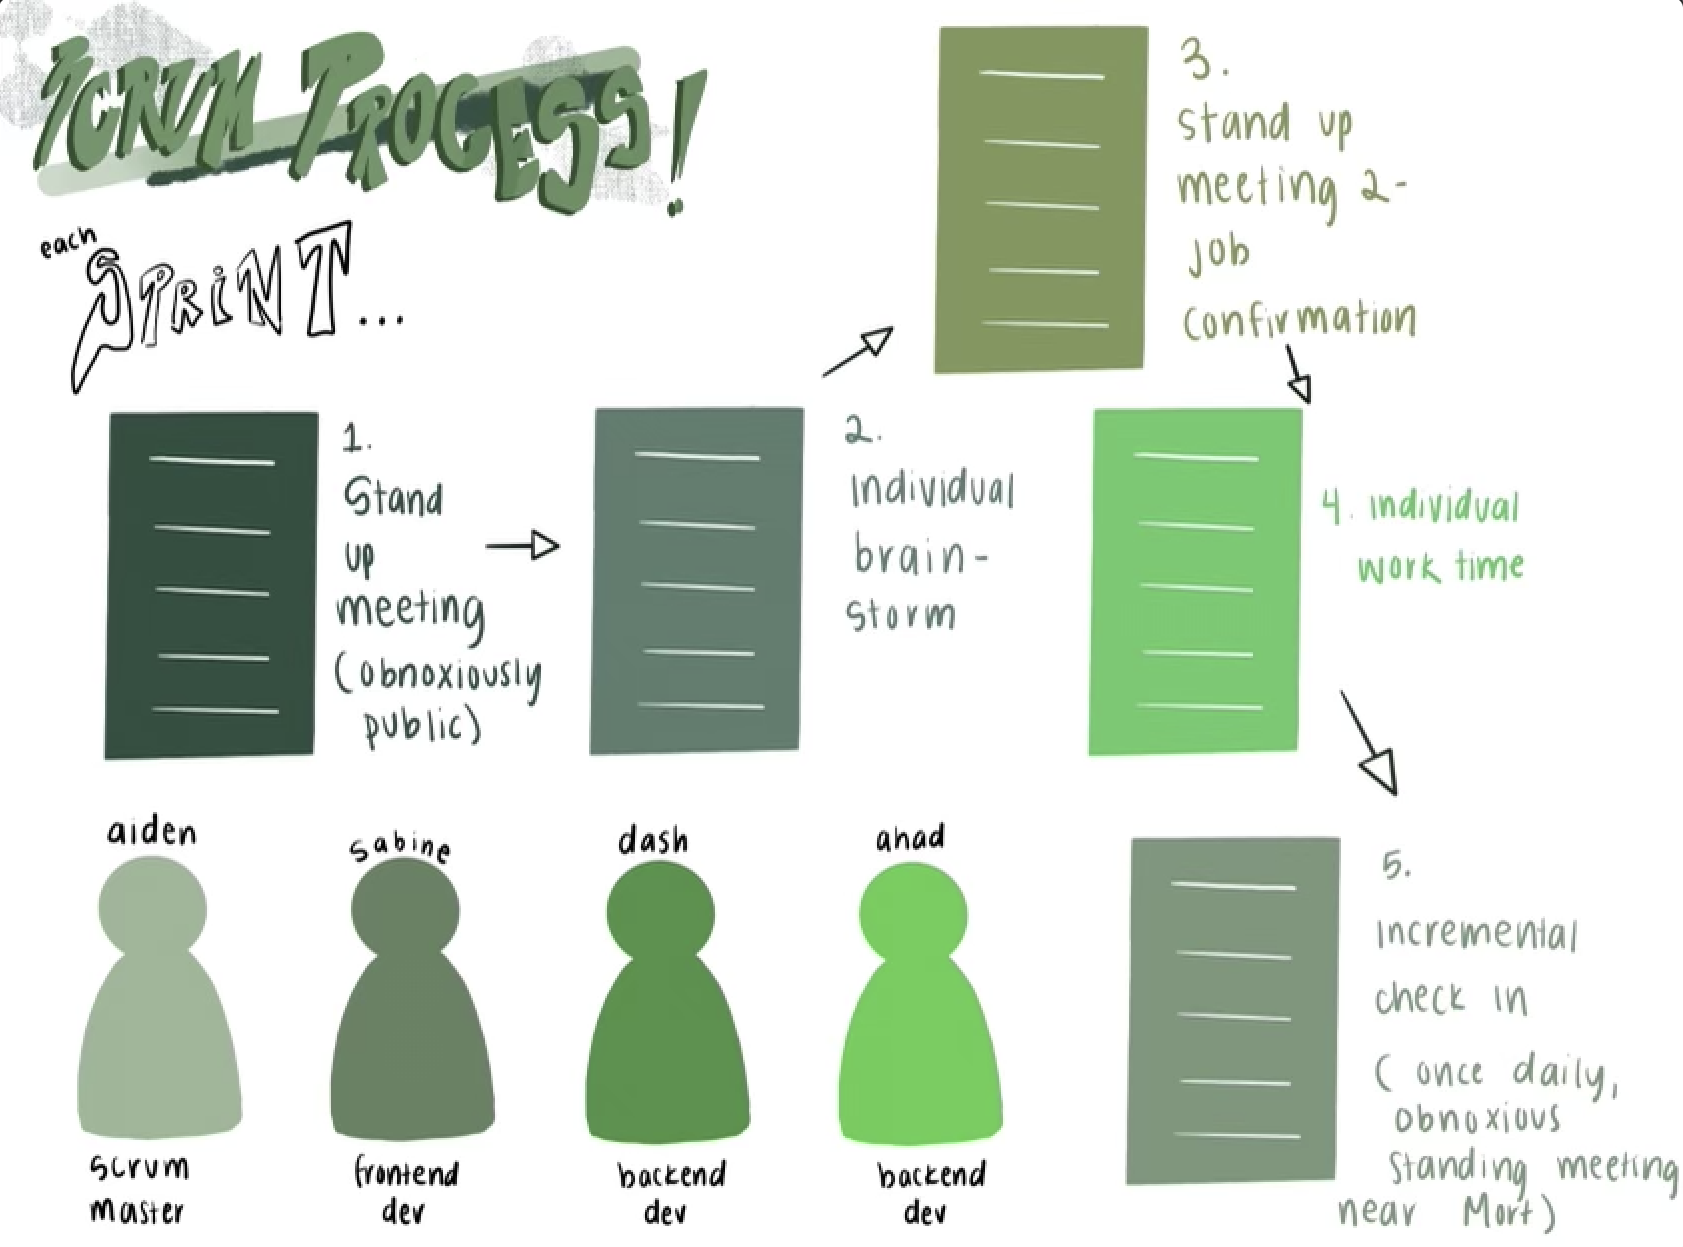 SCRUM PROCESS!
each
SPRINT...
1.
Stand
up
meeting
(obnoxiously
public)
2.
Individual
brain-
storm
3.
Stand up
meeting 2-
job
confirmation
4. Individual
work time
5.
Incremental
check in
(once daily,
obnoxious
standing meeting
near Mort)
aiden
scrum
master
sabine
frontend
dev
dash
backend
dev
ahad
backend
dev